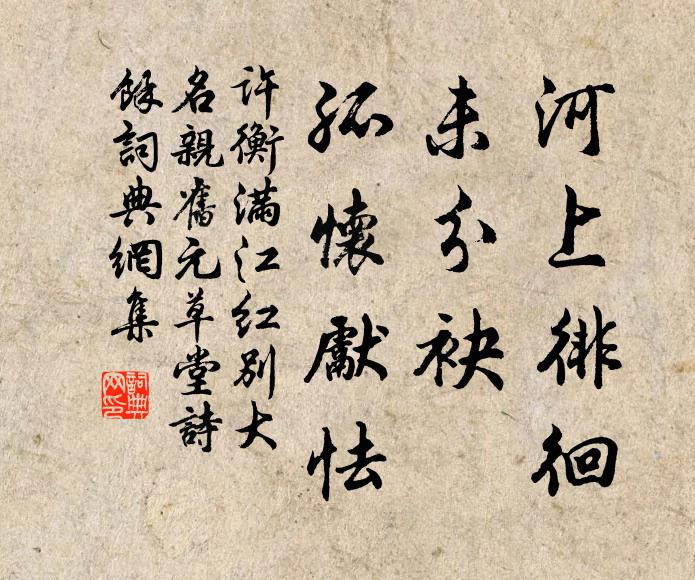 河上徘徊
未分袂
孤懷獻怯
許衡滿江紅別大
名親舊元草堂詩
餘詞典網集
詞典网印